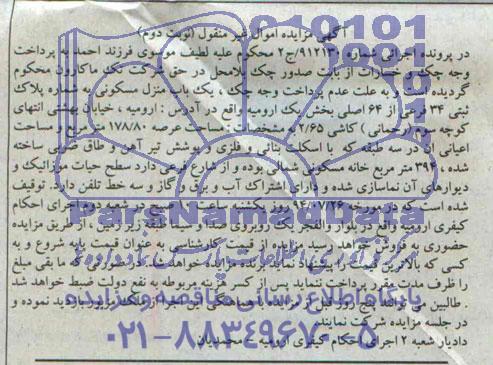 آگهی مزایده اموال غیر منقول (نوبت دوم)
در پرونده اجرائی شماره ۹۱۲۱۳/ج۲ محکوم علیه لطیف موسوی فرزند احمد به پرداخت
وجه چک و خسارات از بابت صدور چک بلامحل در حق شرکت تک ماکارون محکوم
گردیده است و به علت عدم پرداخت وجه چک، یک باب منزل مسکونی به شماره پلاک
ثبتی ۳۴ فرعی از ۶۴ اصلی بخش یک ارومیه واقع در آدرس: ارومیه، خیابان بهشتی انتهای
کوچه سوم (رحمانی) کاشی ۲/۶۵ به مشخصات: مساحت عرصه ۱۷۸/۸۰ متر مربع و مساحت
اعیانی آن در سه طبقه که با اسکلت بنائی و فلزی و پوشش تیر آهن و طاق ضربی ساخته
شده، ۳۹۴ متر مربع خانه مسکونی شمالی بوده و از شارع فرعی دارد سطح حیاط موزائیک و
دیوارهای آن نماسازی شده و دارای اشتراک آب و برق و گاز و سه خط تلفن دارد. توقیف
شده است که در مورخه ۹۴/۰۷/۲۶ روز یکشنبه ساعت صبح در شعبه دوم اجرای احکام
کیفری ارومیه واقع در بلوار والفجر یک روبروی صدا و سیما طبقه زیر زمین، از طریق مزایده
حضوری به فروش خواهد رسید مزایده از قیمت کارشناسی به عنوان قیمت پایه شروع و به
کسی که بالاترین قیمت را پیشنهاد نماید برنده مزایده خواهد شد در صورتی که ما بقی مبلغ
را ظرف مدت مقرر پرداخت ننماید پس از کسر هزینه مربوطه به نفع دولت ضبط خواهد شد
. طالبین می توانند پنج روز قبل از مزایده با هماهنگی این اجرا از ملک مزبور بازدید نموده و
در جلسه مزایده شرکت نمایند
دادیار شعبه ۲ اجرای احکام کیفری ارومیه - محمدیان
ParsNamadData
مرکز فرآوری اطلاعات پارس نماد داده ها
پایگاه اطلاع رسانی مناقصه و مزایده
۰۲۱-۸۸۳۴۹۶۷۰-۵